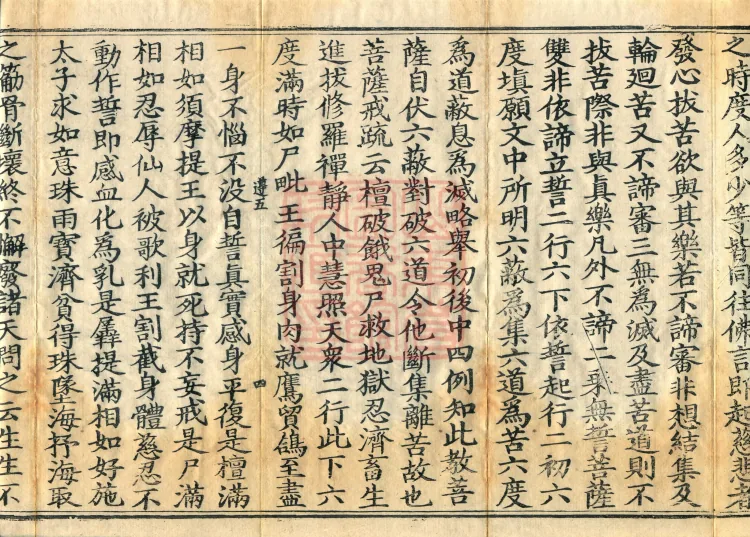 之時度人多少等皆同往佛言即起慈悲者
發心拔苦欲與其樂若不諦審非想結集及
輪廻苦又不諦審三無為滅及盡苦道則不
拔苦際非與真樂凡外不諦二乘無誓菩薩
雙非依諦立誓二行六下依誓起行二初六
度填願文中所明六蔽為集六道為苦六度
為道蔽息為滅略舉初後中四例知此教菩
薩自伏六蔽對破六道令他斷集離苦故也
菩薩戒疏云檀破餓鬼尸救地獄忍濟畜生
進拔修羅禪靜人中慧照天衆二行此下六
度滿時如尸毗王徧割身肉就鷹貿鴿至盡
遵五 四
一身不惱不没自誓真實感身平復是檀滿
相如須摩提王以身就死持不妄戒是尸滿
相如忍辱仙人被歌利王割截身體慈忍不
動作誓即感血化為乳是羼提滿相如好施
太子求如意珠雨寶濟貧得珠墜海抒海取
之筋骨斷壞終不懈廢諸天問之云生生不